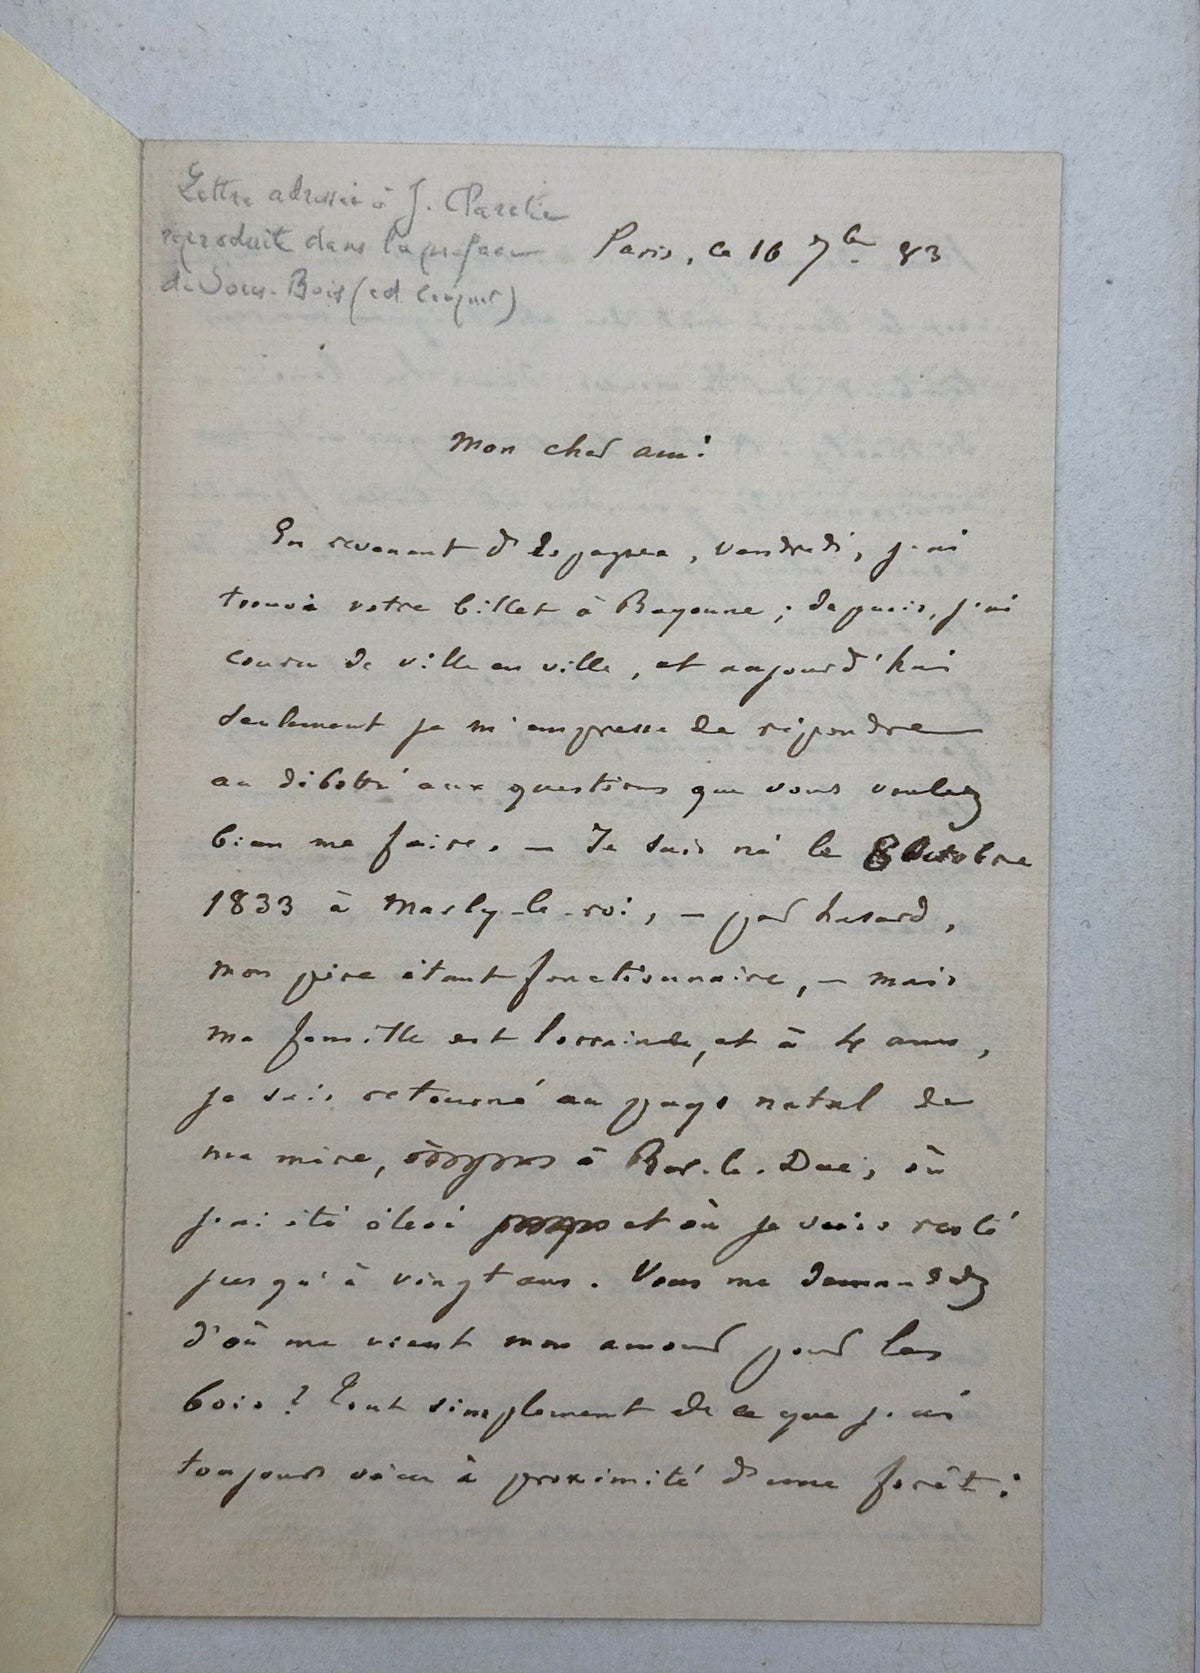 Lettre adressée à J. Claretie
reproduite dans la préface
de Sous-Bois (ed. Conquet)
Paris, ce 16 7bre 83
Mon cher ami:
En revenant d'Espagne, vendredi, j'ai
trouvé votre billet à Bayonne; depuis, j'ai
couru de ville en ville, et aujourd'hui
seulement je m'empresse de répondre
au débotté aux questions que vous voulez
bien me faire. — Je suis né le 8 Octobre
1833 à Marly-le-roi, — par hasard,
mon père étant fonctionnaire, — mais
ma famille est lorraine, et à 4 ans,
je suis retourné au pays natal de
ma mère, à Bar-le-Duc, où
j'ai été élevé et où je suis resté
jusqu'à vingt ans. Vous me demandez
d'où me vient mon amour pour les
bois? Tout simplement de ce que j'ai
toujours vécu à proximité d'une forêt: